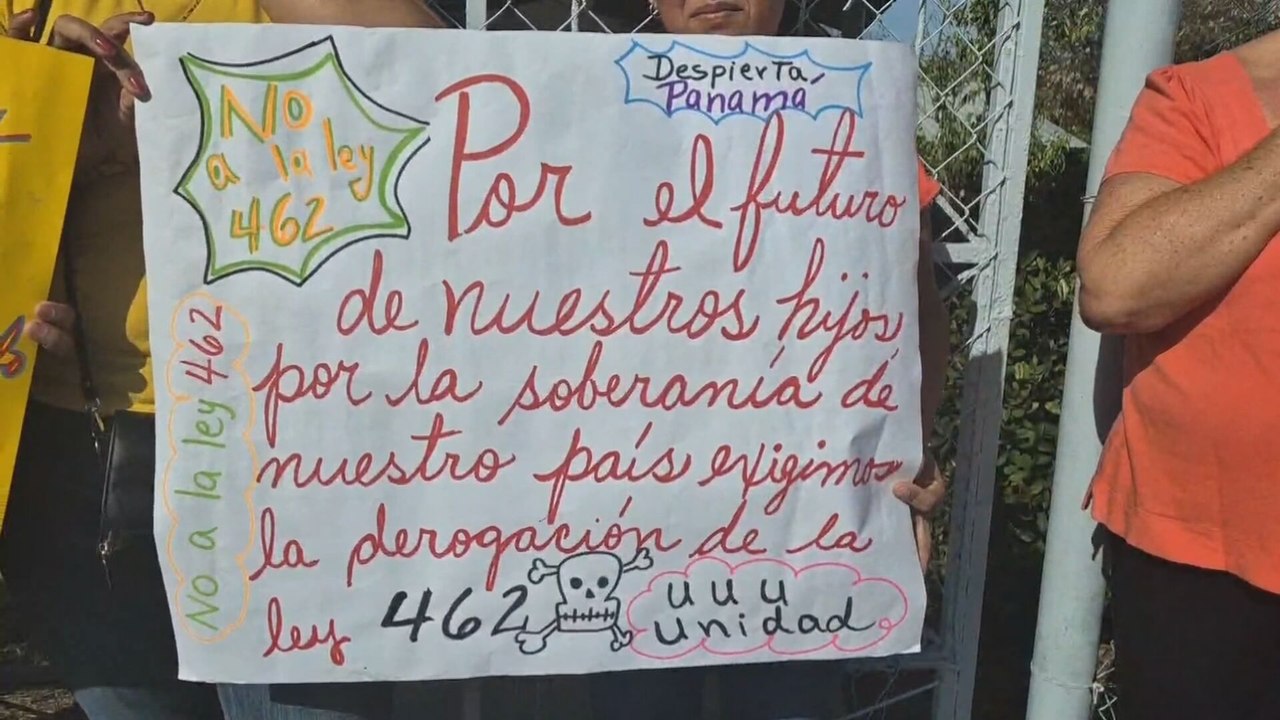 No
a la ley
462
Despierta,
Panamá
Por el futuro
de nuestros hijos,
por la soberanía de
nuestro país exigimos
la derogación de la
ley 462
u u u
unidad.
No a la ley 462